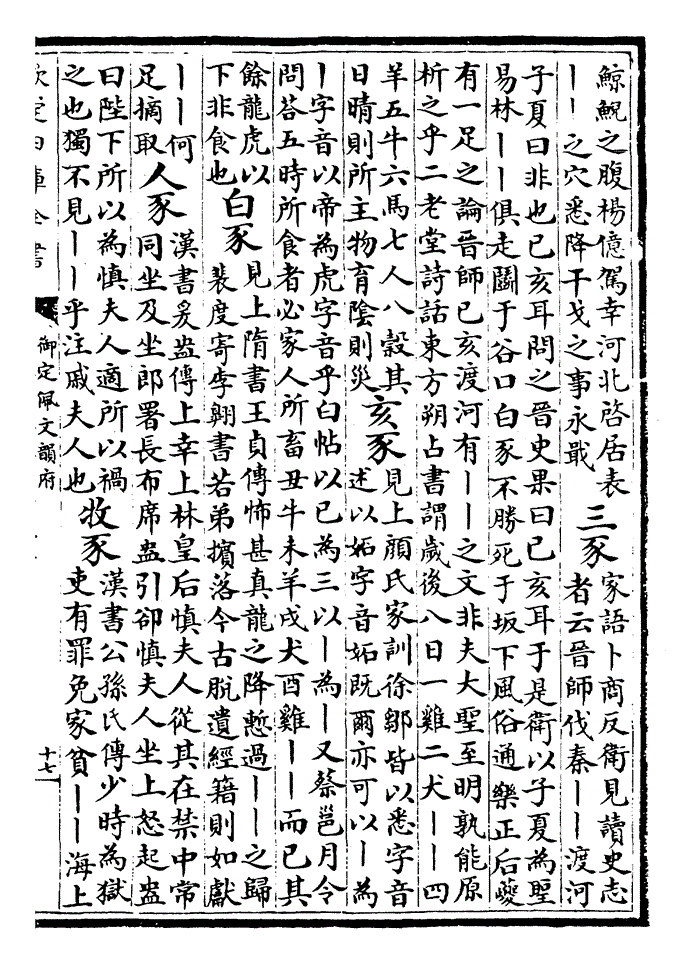 鯨鯢之腹楊億駕幸河北啓居表
丨丨之穴悉降干戈之事永戢
三豕
家語卜商反衛見讀史志
者云晉師伐秦丨丨渡河
子夏曰非也已亥耳問之晉史果曰已亥耳于是衛以子夏為聖
易林丨丨俱走鬭于谷口白豕不勝死于坂下風俗通樂正后夔
有一足之論晉師已亥渡河有丨丨之文非夫大聖至明孰能原
析之乎二老堂詩話東方朔占書謂歲後八日一雞二犬丨丨四
羊五牛六馬七人八穀其
日晴則所主物育陰則災
亥豕
見上顔氏家訓徐鄒皆以悉字音
述以妬字音妬既爾亦可以丨為
丨字音以帝為虎字音乎白帖以已為三以丨為丨又蔡邕月令
問荅五時所食者必家人所畜丑牛未羊戌犬酉雞丨丨而已其
餘龍虎以
下非食也
白豕
見上隋書王貞傳怖甚真龍之降慙過丨丨之歸
裴度寄李翺書若弟擯落今古脫遺經籍則如獻
丨丨何
足摘取
人豕
漢書爰盎傳上幸上林皇后慎夫人從其在禁中常
同坐及坐郎署長布席盎引卻慎夫人坐上怒起盎
曰陛下所以為慎夫人適所以禍
之也獨不見丨丨乎注戚夫人也
牧豕
漢書公孫氏傳少時為獄
吏有罪免家貧丨丨海上
欽定四庫全書
御定佩文韻府
十七